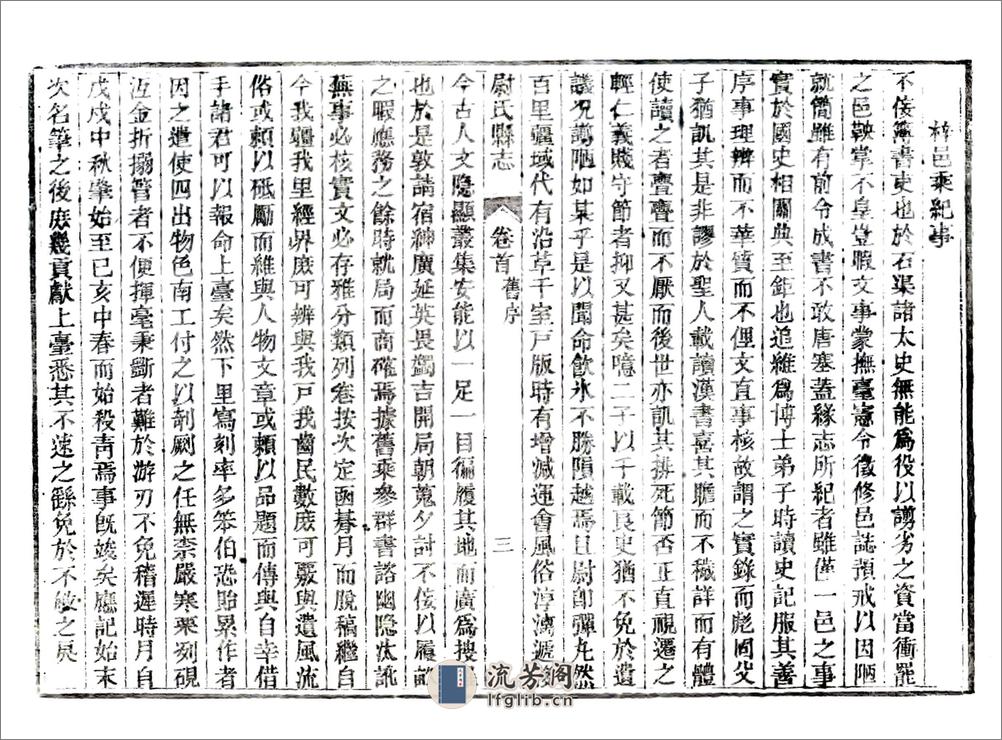 梓邑乘紀事
不佞簿書吏也於石渠諸太史無能爲役以謭劣之資當衝罷
之邑鞅掌不皇豈暇文事蒙撫臺憲令徵修邑誌預戒以因陋
就簡雖有前令成書不敢唐塞蓋緣志所紀者雖僅一邑之事
實於國史相關典至鉅也追維爲博士弟子時讀史記服其善
序事理辨而不華質而不俚文直事核故謂之實錄而彪固父
子猶訊其是非謬於聖人載讀漢書喜其贍而不穢詳而有體
使讀之者亹亹而不厭而後世亦訊其排死節否正直視遷之
輕仁義賤守節者抑又甚矣噫二子以千載良史猶不免於遺
議况謭陋如某乎是以聞命飲氷不勝隕越焉且尉卽彈丸然
百里疆域代有沿革千室戸版時有增減運會風俗淳漓遞
尉氏縣志 卷首 舊序 三
今古人文隱顯叢集安能以一足一目徧履其地而廣爲搜
也於是敦請宿紳廣延英畏蠲吉開局朝蒐夕討不佞以履
之暇應務之餘時就局而商確焉據舊乘參群書諮幽隐汰訛
蕪事必核實文必存雅分類列卷按次定函朞月而脱稿繼自
今我疆我里經界庶可辨與我戸我齒民數庶可覈與遺風流
俗或頼以砥勵而維與人物文章或頼以品題而傳與自幸借
手諸君可以報命上臺矣然下里寫刻率多笨伯恐貽累作者
因之遣使四出物色南工付之以剞劂之任無柰嚴寒栗冽硯
冱金折搦管者不便揮毫秉斵者難於游刃不免稽遲時月自
戊戌中秋肇始至已亥中春而始殺青焉事旣竣矣應記始末
次名筆之後庶幾貢獻上臺悉其不速之繇免於不敏之戾
流芳阁
lfglib.cn